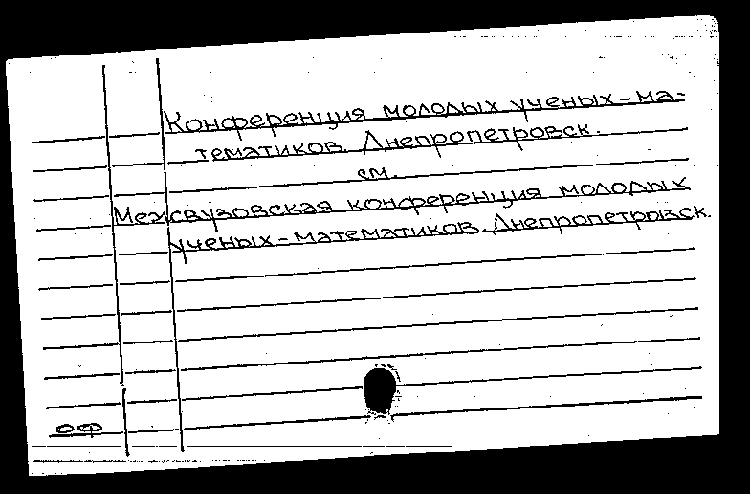 Конференция молодых ученых-ма-
тематиков. Днепропетровск.
см.
Межвузовская конференция молодых
ученых-математиков. Днепропетровск.
оф